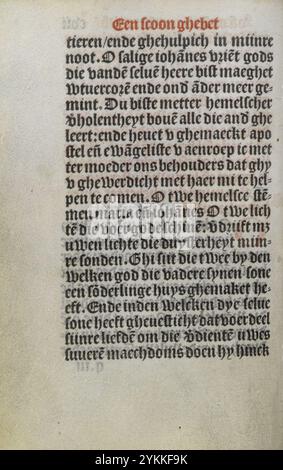 Een scoon ghebet
tieren/ende ghehulpich in miinre
noot. O salige iohānes vriēt gods
die vandē seluē heere bist maeghet
wtuercorē ende ond āder meer ge-
mint. Du biste metter hemelscher
vholentheyt bouē alle die and ghe
leert: ende heuet v ghemaeckt apo
stel eñ ewāgeliste v aenroep ic met
ter moeder ons behouders dat ghy
v ghewerdicht met haer mi te hel-
pen te comen. O twe hemelsce stē-
men maria eñ iohānes O twe lich
tē die voer god schinē: vdriift mz
uwen lichte die duysterheyt miin-
re sonden. Ghi siit die twee by den
welken god die vadere synen sone
een sōderlinge huys ghemaket he-
eft. Ende inden welcken dye selue
sone heeft gheuesticht dat voerdeel
siinre liefdē om die vdientē uwes
suuerē maechdoms doen hy hinck
alamy
Image ID: 2YKKF9K
www.alamy.com